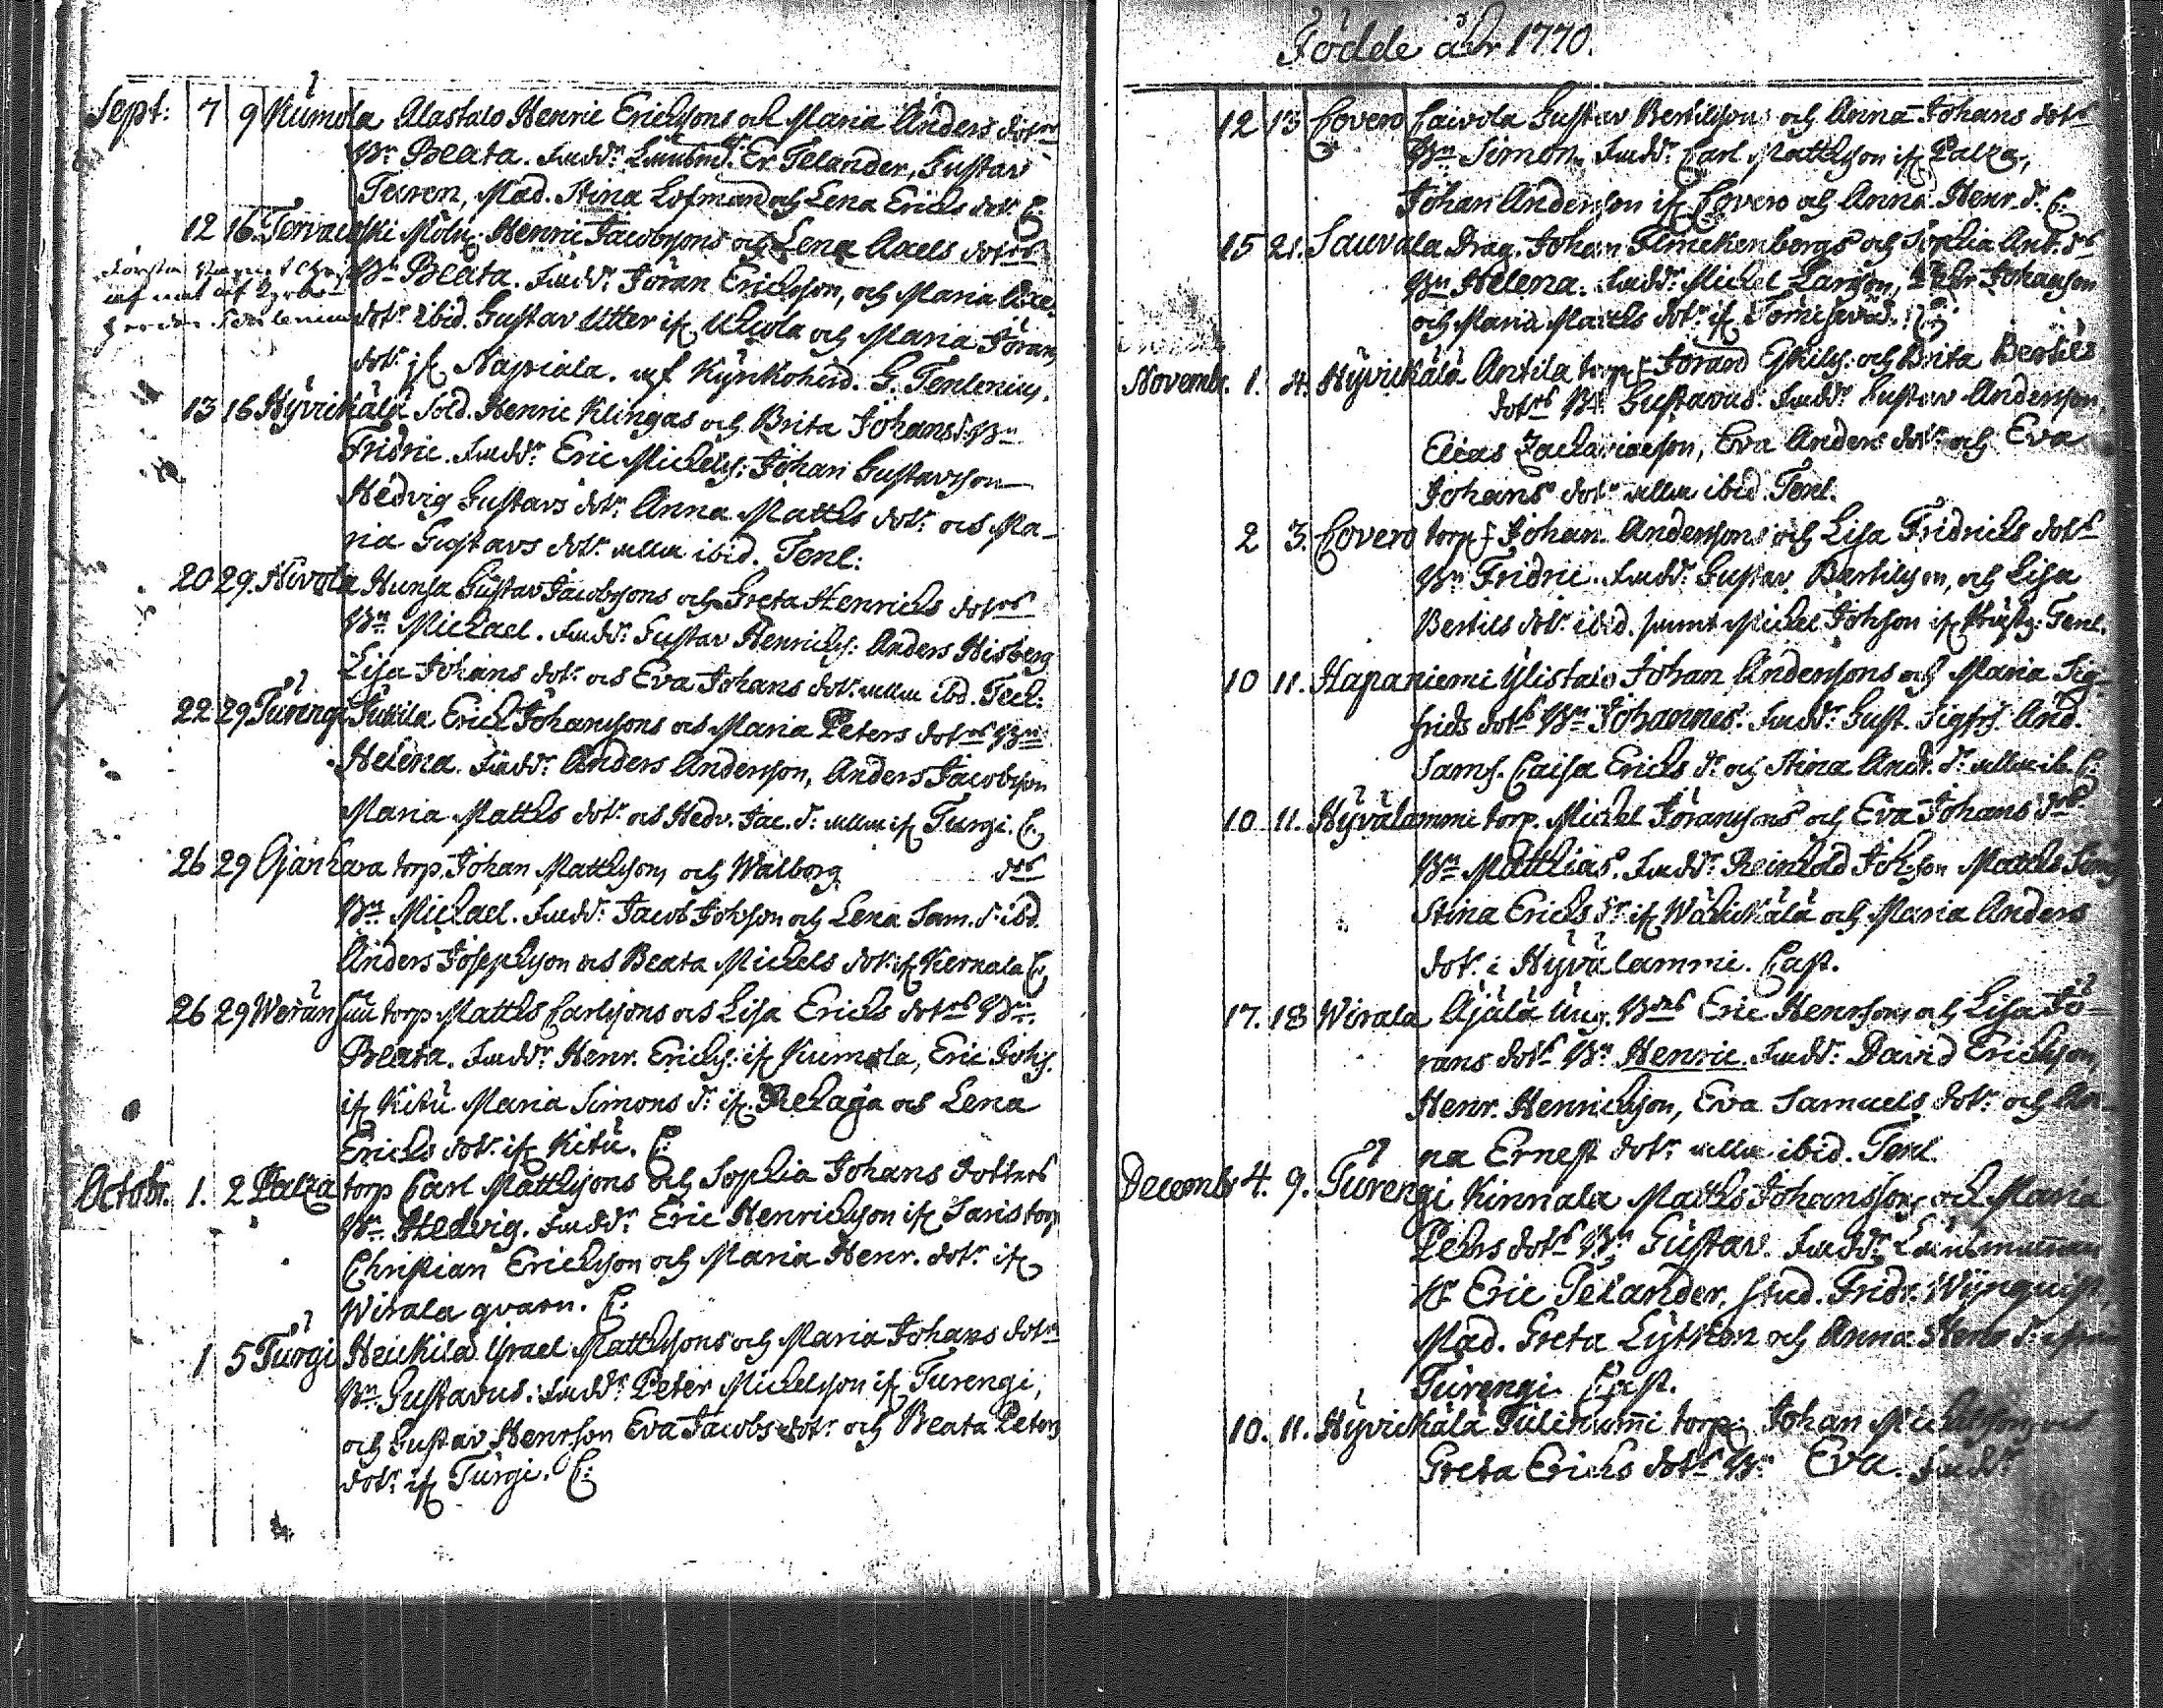 Sept: 7 9 Kumola Alastalo Henric Ericksons och Maria Anders dotrs
Bn Beata. Fadd: Er. Telander, Gustav
Teuren, Mad. Stina Lofman och Lena Ericks dotr. C:
12 16. Tervakoski Möln. Henric Jacobsons och Lena Axels dotrs
Bn Beata. Fadd: Jöran Erickson, och Maria Axels
dotr ibid. Gustav Utter if och Maria Jörans
dotr if Napiala. af Kyrkoherd. G. Tenlenius.
13 16 Hyvickälä Sold. Henric Klingas och Brita Johans d. Bn
Fridric. Fadd: Eric Michels: Johan Gustavson
Hedvig Gustavs dotr. Anna Matths dotr. och Ma-
ria Gustavs dotr. alla ibid. Tenl:
20 29. Nivola Hunsa Gustav Jacobsons och Greta Henricks dotrs
Bn Michael. Fadd: Gustav Henricks: Anders Hisberg
Lisa Johans dotr. och Eva Johans dotr. alla ibd. Tenl:
22 29 Türengi Erick Johansons och Maria Peters dotrs Bn
Helena. Fadd: Anders Anderson, Anders Jacobson
Maria Matths dotr. och Hedv. Jac. d: alla if Turgi. C:
26 29 Ojanhara torp. Johan Mattsons och Walborg drs
Bn Michael. Fadd: Jacob Johson och Lena Sam. d. ibd.
Anders Josephson och Beata Michels dotr. if Kernala C:
26 29 torp Matths Carlsons och Lisa Ericks dotrs Bn.
Beata. Fadd: Henr. Ericks: if Kumola, Eric Johs.
if Kitü Maria Simons d: if Relaja och Lena
Ericks dotr. if Kitü. C:
Octobr. 1. 2 Palza torp Carl Matthsons och Sophia Johans dotters
Bn. Hedvig. Fadd: Eric Henrickson if Saris torp
Christian Erickson och Maria Henr. dotr. if
Wirala qvarn. C:
1 5 Türgi Heickilä Israel Matthsons och Maria Johans dotrs
Bn. Gustavus. Fadd: Peter Michelson if Turengi,
och Gustav Henrson Eva Jacobs dotr. och Beata Peters
dotr. if Turgi. C:
Födde åhr 1770.
12 13 Covero Gustav Bertilsons och Anna Johans dotrs
Bn Simon. Fadd: Carl Mattson if Palza,
Johan Anderson if Covero och Anna Henr. d. C:
15 21. Sauvala Drag. Johan Flinckenbergs och Sophia And. drs
Bn Helena. Fadd: Michel Larson, Johanson
och Maria Matths dotr. if C:
Novembr. 1. 4. Hyvickälä Antila torp Jörand Eskils: och Brita Bertils
dotrs Bn. Gustavus. Fadd: Gustav Anderson,
Elias Zachariaeson, Eva Anders dotr. och Eva
Johans dotr. alla ibid. Tenl.
2 3. Covero torp Johan Andersons och Lisa Fridricks dotrs
Bn Fridric. Fadd: Gustav Bertilson, och Lisa
Bertils dotr. ibid. samt Michel Johson if Tenl.
10 11. Hapaniemi Ylistalo Johan Andersons och Maria Sig-
frids dotrs Bn Johannes. Fadd: Gust. Sigfs. And.
Sams. Caisa Ericks d. och Stina And. d. alla ib. C:
10 11. Hyvälammi torp. Michel Jöransons och Eva Johans drs
Bn Matthias. Fadd: Reinhold Johson Matths Sims
Stina Ericks d. if Wähickälä och Maria Anders
dotr. i Hyvälammi. Cast.
17. 18 Wirala Äjälä Ung. Bns Eric Henrsons och Lisa Jö-
rans dotrs Bn Henric. Fadd: David Erickson,
Henr. Henrickson, Eva Samuels dotr. och An-
na Ernest dotr. alla ibid. Tenl.
Decembr 4. 9. Türengi Kinnala Matths Johansons och Maria
Pehrs dotrs Bn: Gustav. Fadd: Länsmannen
Hr Eric Telander, stud. Fridr. Wijnquist,
Mad. Greta Lytsken och Anna Henr. d.
Türengi. Cast.
10. 11. Hyvickälä torp. Johan Michelsons och
Greta Ericks dotrs Bn Eva. Fadd: